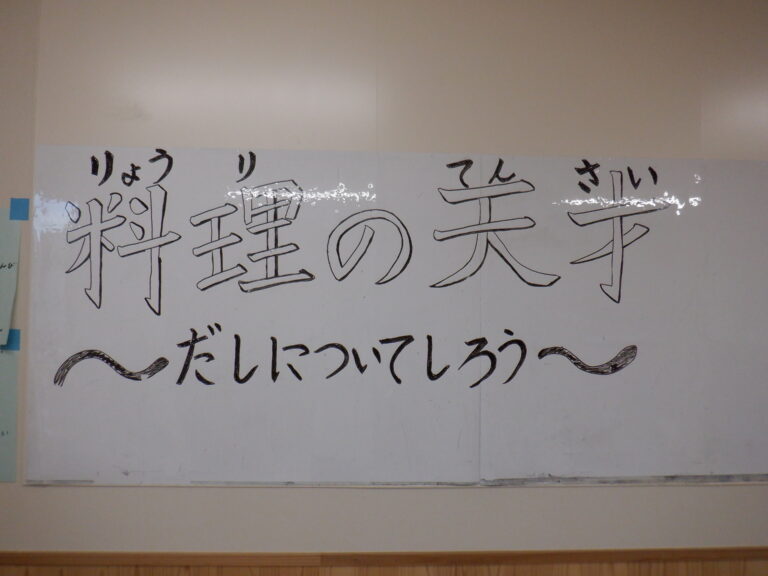 りょう り てん さい
料理の天才
〜だしについてしろう〜